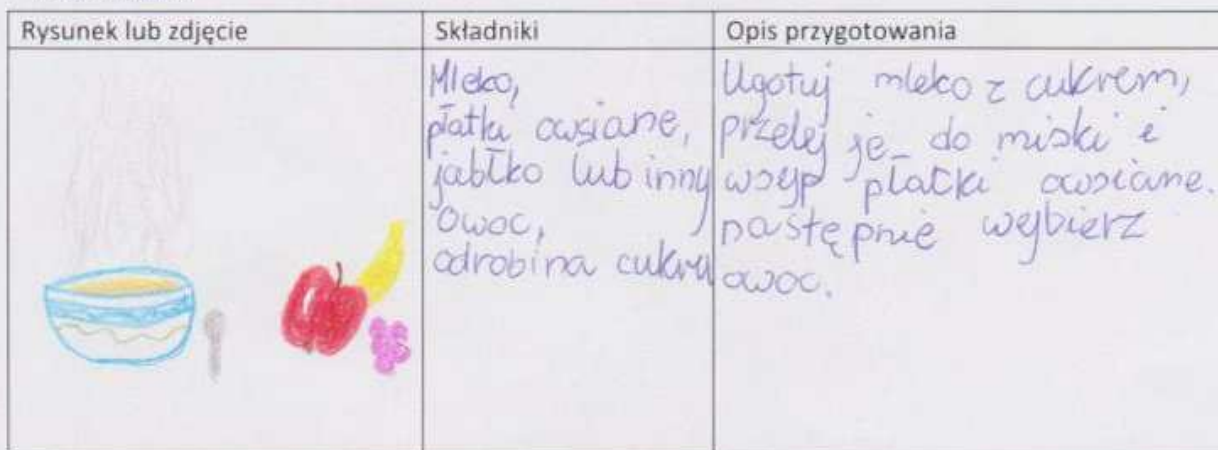 Rysunek lub zdjęcie
Składniki
Opis przygotowania
Mleko,
płatki owsiane,
jabłko lub inny
owoc,
odrobina cukru
Ugotuj mleko z cukrem,
przelej je do miski i
wsyp płatki owsiane.
następnie wybierz
owoc.